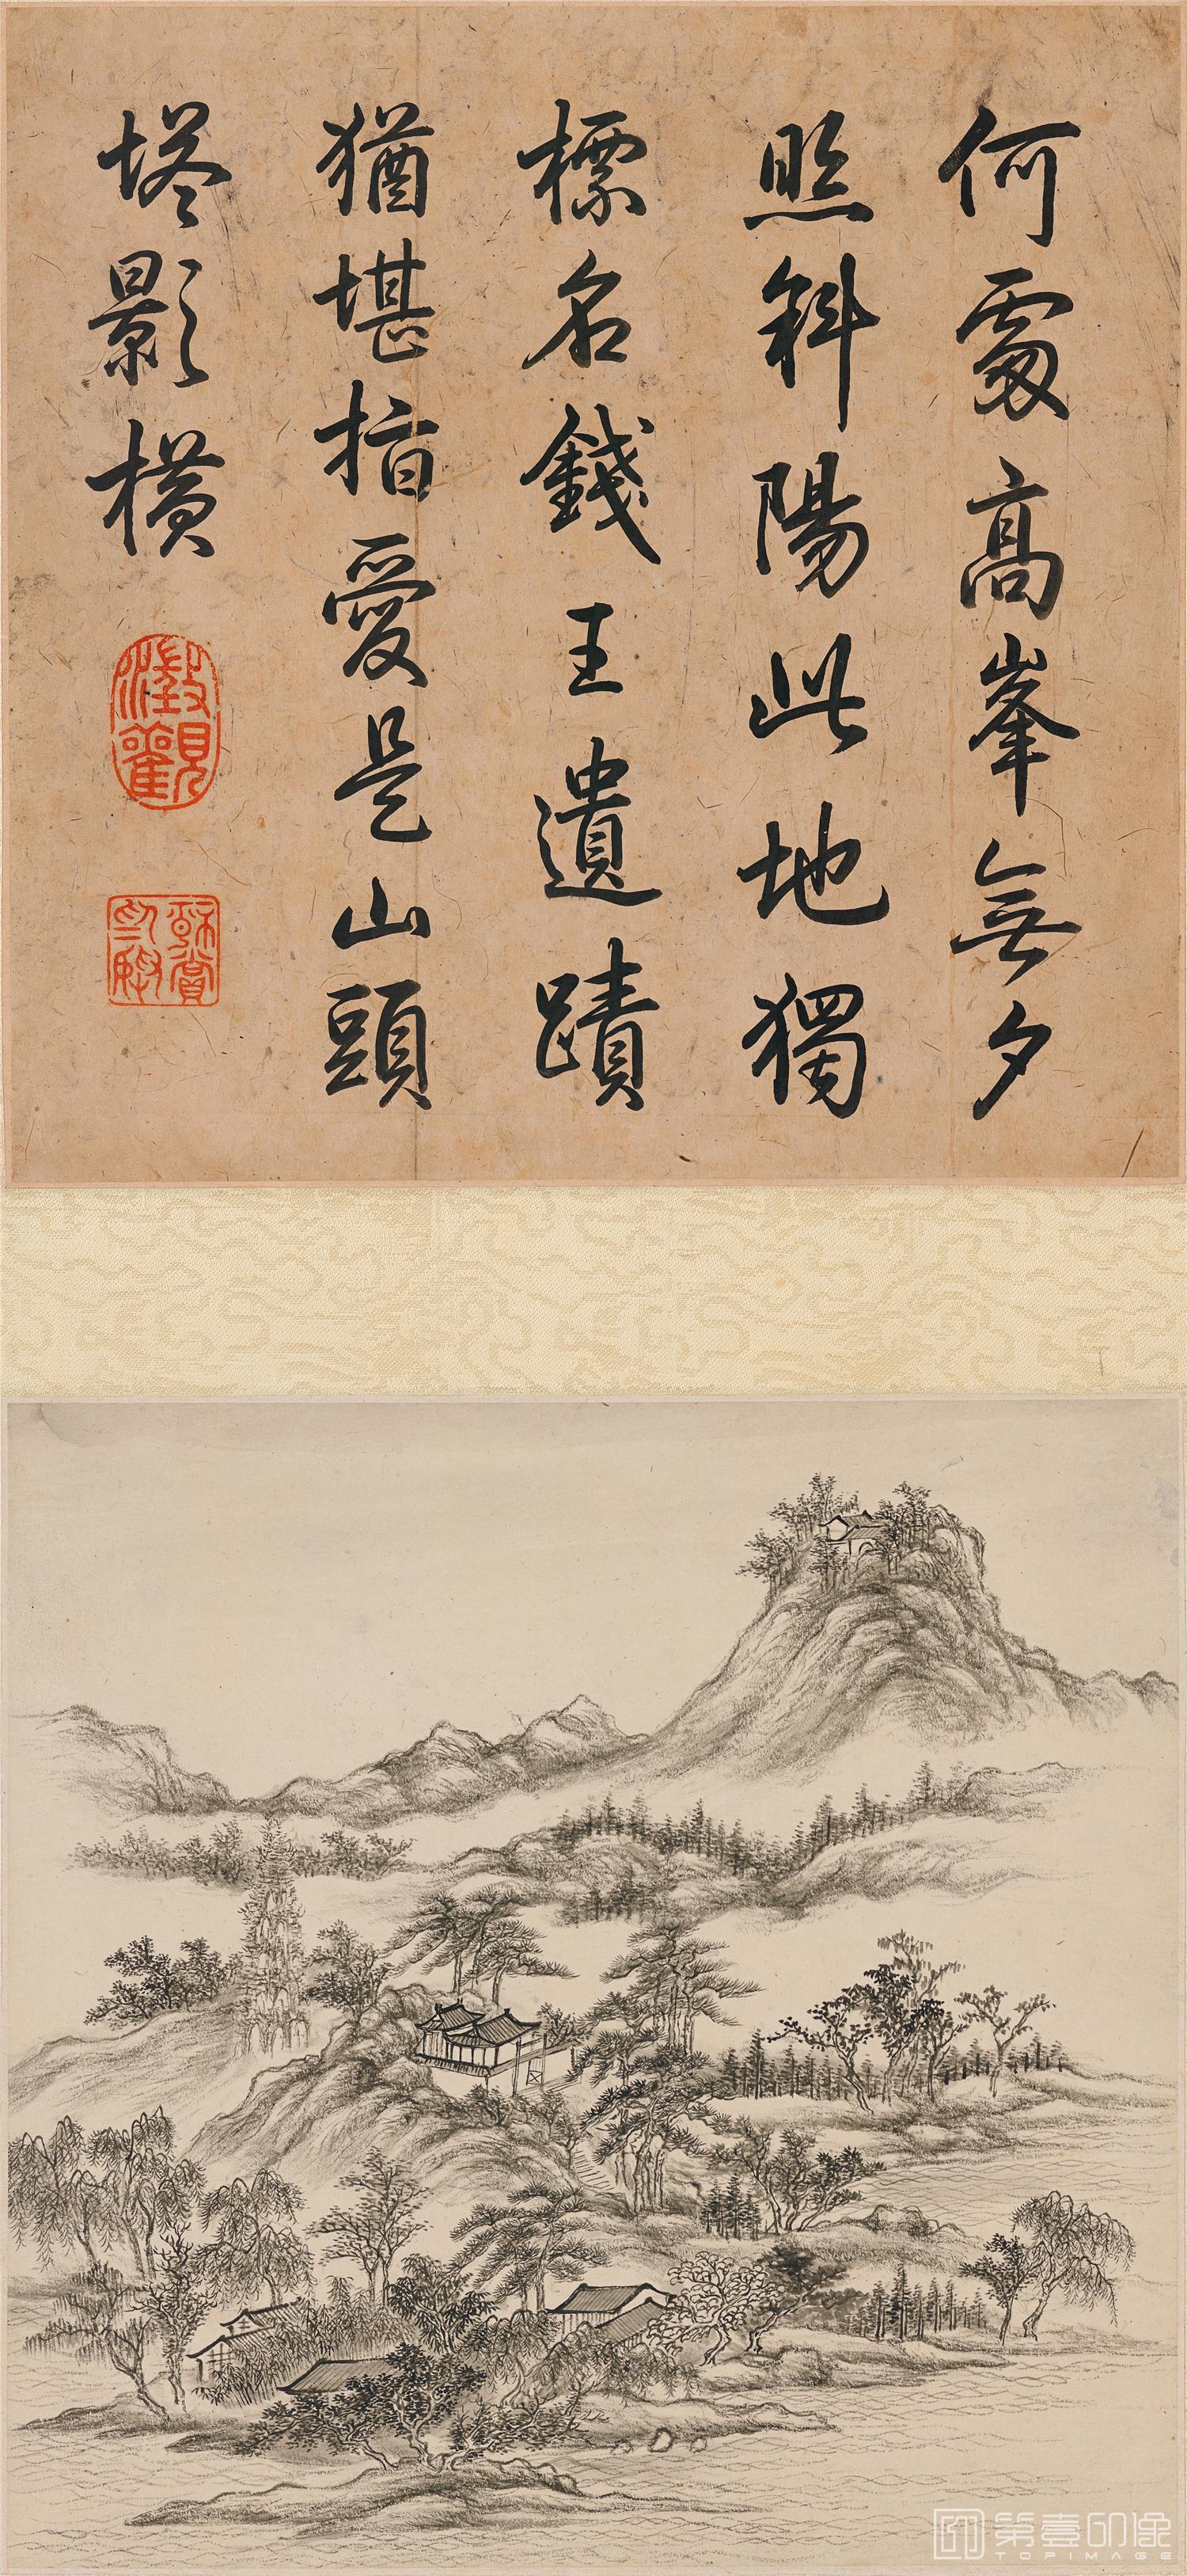 何處高峯無夕
照斜陽此地獨
標名錢王遺蹟
猶堪指愛是山頭
塔影橫
第壹印像
TOPIMAGE